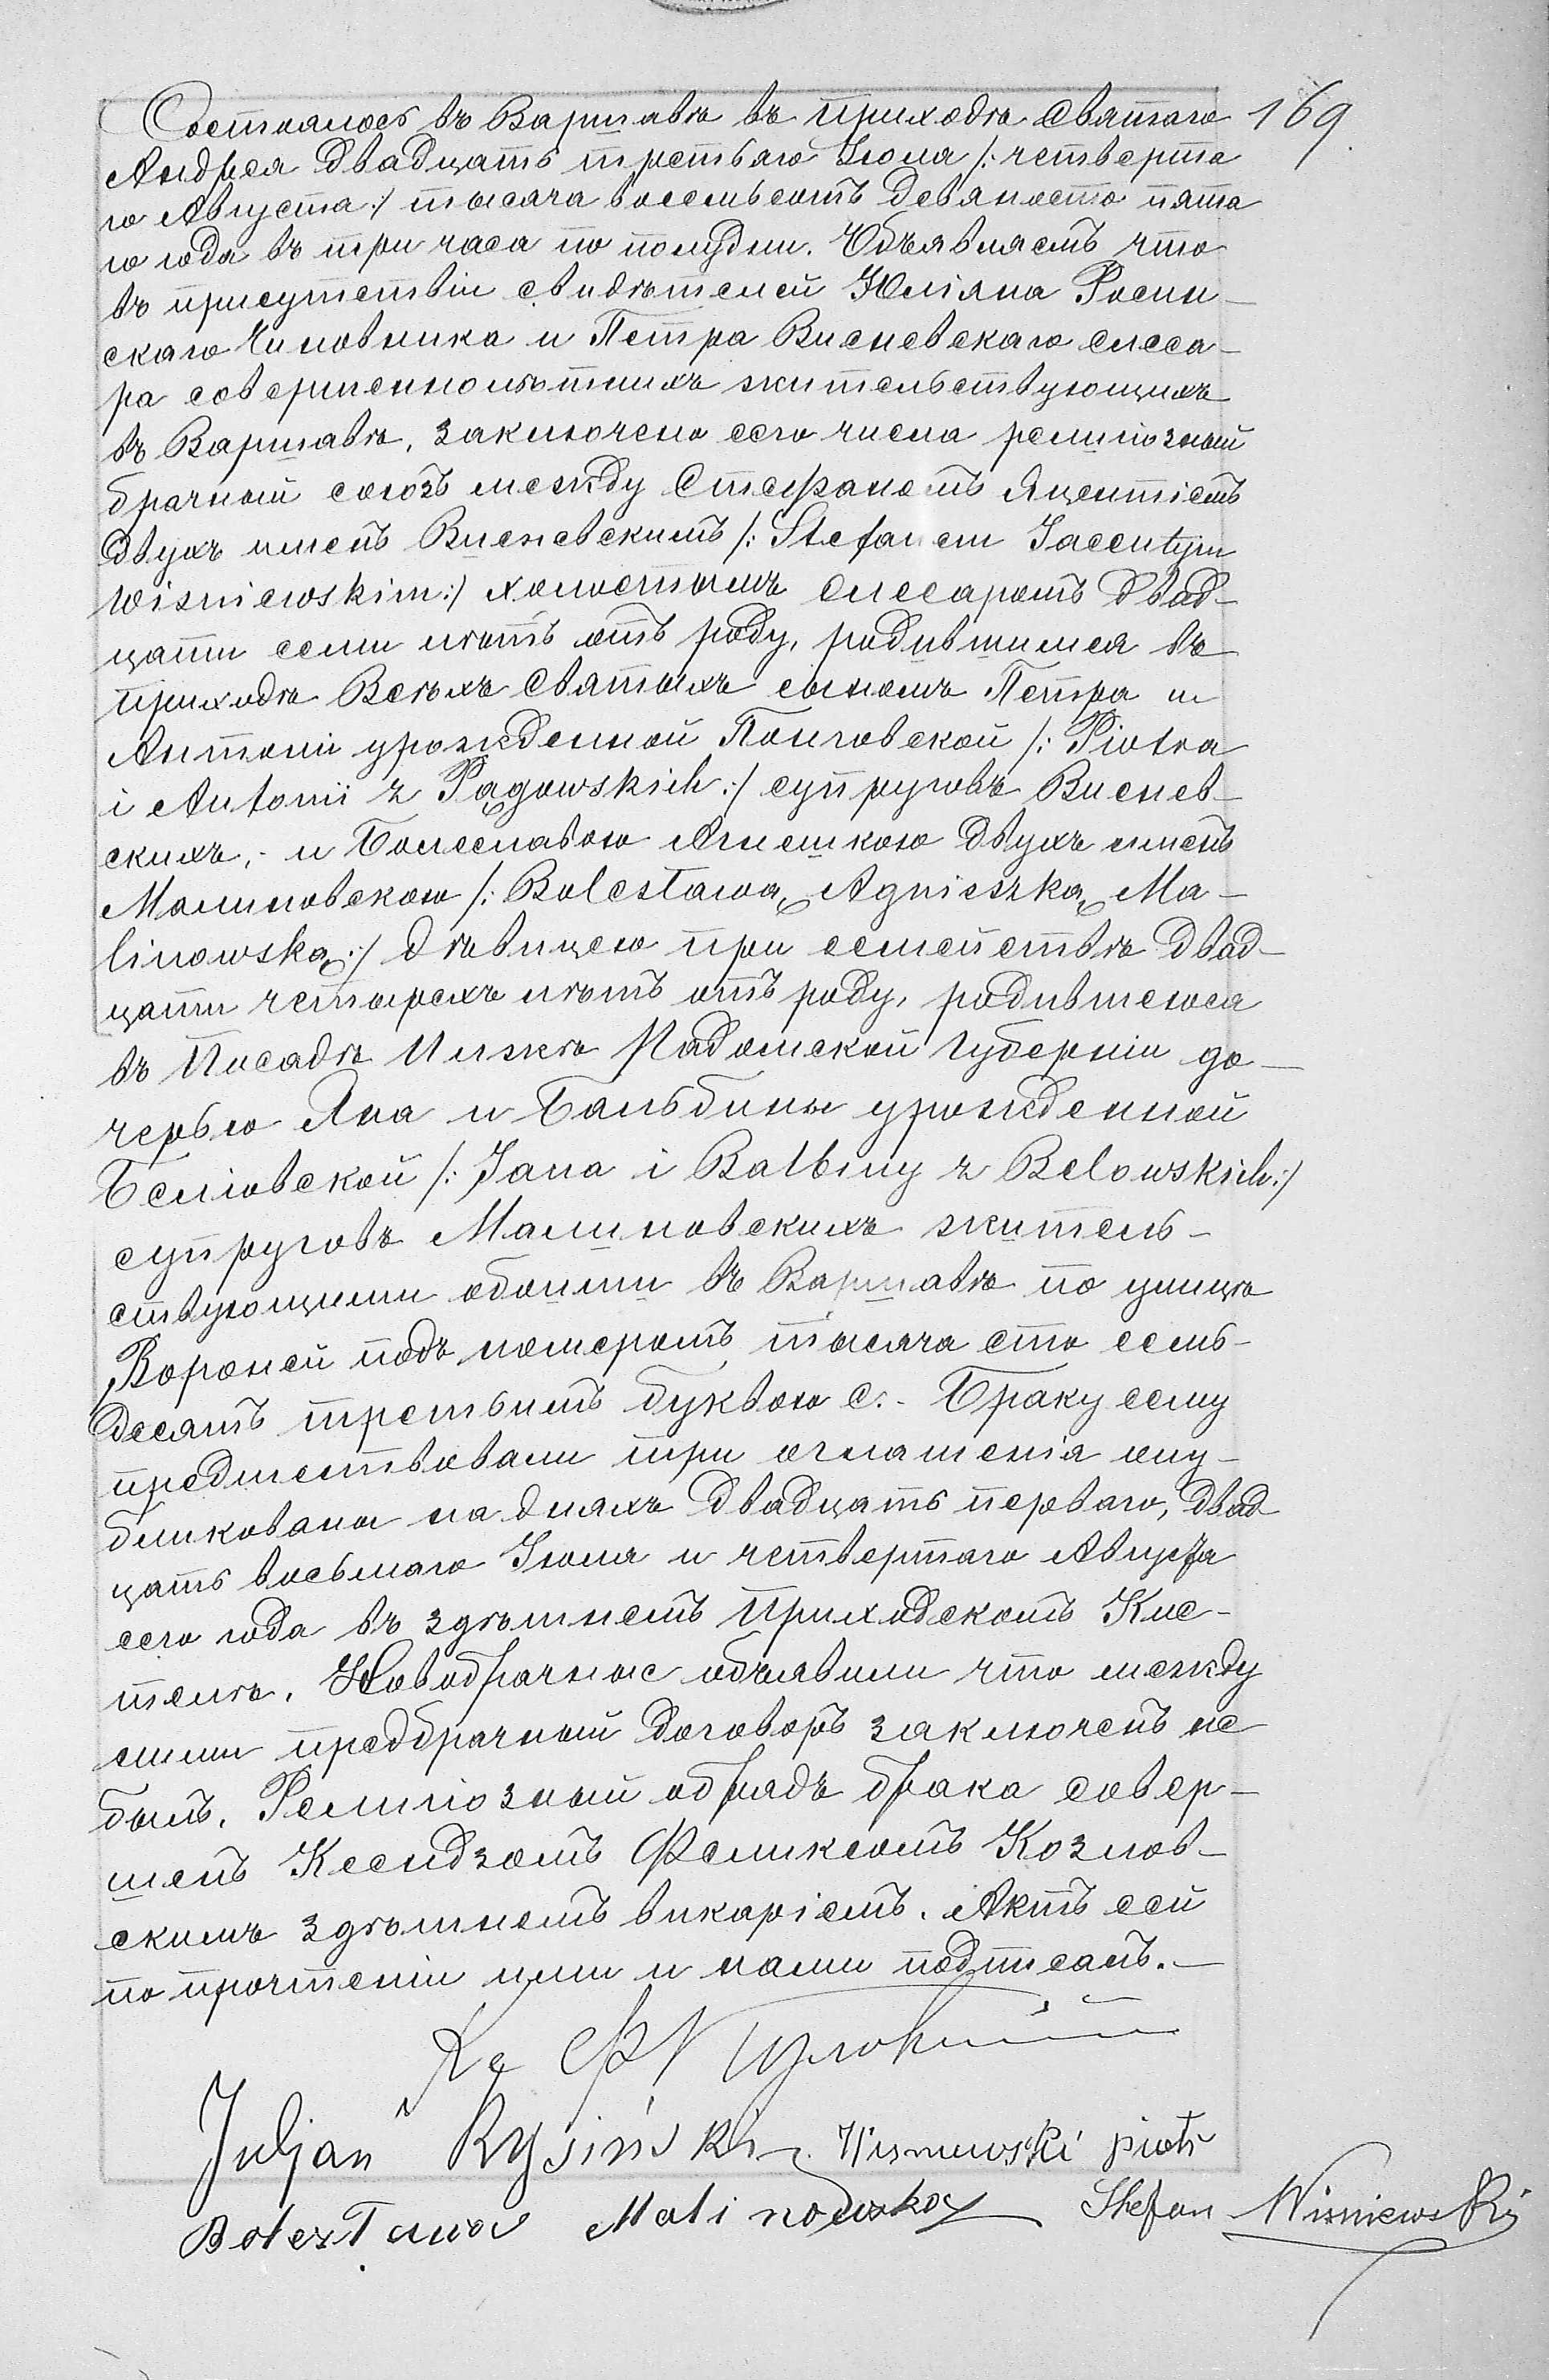 Состоялось въ Варшавѣ въ приходѣ Святаго 169.
Андрея двадцать третьяго Іюля /: четверта
го Августа :/ тысяча восемьсотъ девяносто пята
го года въ три часа по полудни. Объявляемъ что
въ присутствіи свидѣтелей Юліяна Росин-
скаго Чиновника и Петра Висневскаго слеса-
ра совершеннолѣтнихъ жительствующихъ
въ Варшавѣ, заключено сего числа религіозный
брачный союзъ между Стефаномъ Яцентіемъ
двухъ именъ Висневскимъ /: Stefanem Jacentym
Wisniewskim :/ холостымъ слесаромъ двад-
цати семи лѣтъ отъ роду, родившимся въ
приходѣ Всѣхъ Святыхъ сыномъ Петра и
Антоніи урожденной Понговской /: Piotra
i Antonii z Pągowskich :/ супруговъ Виснев-
скихъ,- и Болеславою Агнешкою двухъ именъ
Малиновскою /: Bolesławą Agnieszką Ma-
linowską :/ дѣвицею при семействѣ двад-
цати четырехъ лѣтъ отъ роду, родившеюся
въ Посадѣ Илжѣ Радомской Губерніи до-
черью Яна и Бальбины урожденной
Беліовской /: Jana i Balbiny z Belowskich :/
супруговъ Малиновскихъ житель-
ствующими обоими въ Варшавѣ по улицѣ
Вороней подъ номеромъ тысяча сто семь-
десятъ третьимъ буквою С.- Браку сему
предшествовали три оглашенія опу-
бликованы на дняхъ двадцать перваго, двад
цать восьмаго Іюля и четвертаго Августа
сего года въ здѣшнемъ Приходскомъ Кос-
телѣ. Новобрачные объявили что между
ними предбрачный договоръ заключенъ не
былъ. Религіозный обрядъ брака совер-
шенъ Ксендзомъ Феликсомъ Козлов-
скимъ здѣшнемъ викаріемъ. Актъ сей
по прочтеніи ими и нами подписанъ.-
Кс Ф Козловскій
Juljan Rysiński Wisniewski piotr
Bolesława Malinowska Stefan Wisniewski